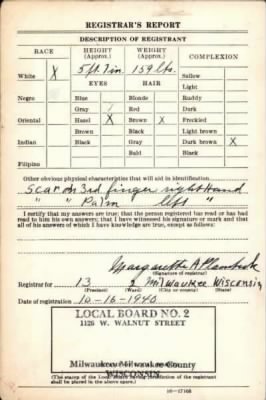 REGISTRAR'S REPORT
DESCRIPTION OF REGISTRANT
RACE HEIGHT (Approx.) WEIGHT (Approx.) COMPLEXION
White X 5 ft. 7 in. 159 lbs. Sallow
EYES HAIR Light
Negro Blue Blonde Ruddy
Gray Red Dark
Oriental Hazel X Brown X Freckled
Brown Black Light brown
Indian Black Gray Dark brown X
Bald Black
Filipino
Other obvious physical characteristics that will aid in identification
Scar on 3rd finger right hand
" " Palm left "
I certify that my answers are true; that the person registered has read or has had read to him his own answers; that I have witnessed his signature or mark and that all of his answers of which I have knowledge are true, except as follows:
Registrar for 13 2 Milwaukee Wisconsin
(Precinct) (Ward) (City or county) (State)
Date of registration 10-16-1940
LOCAL BOARD NO. 2
1126 W. WALNUT STREET
Milwaukee Milwaukee County
WISCONSIN
(The stamp of the Local Board having jurisdiction of the registrant shall be placed in the above space.)
16-17105